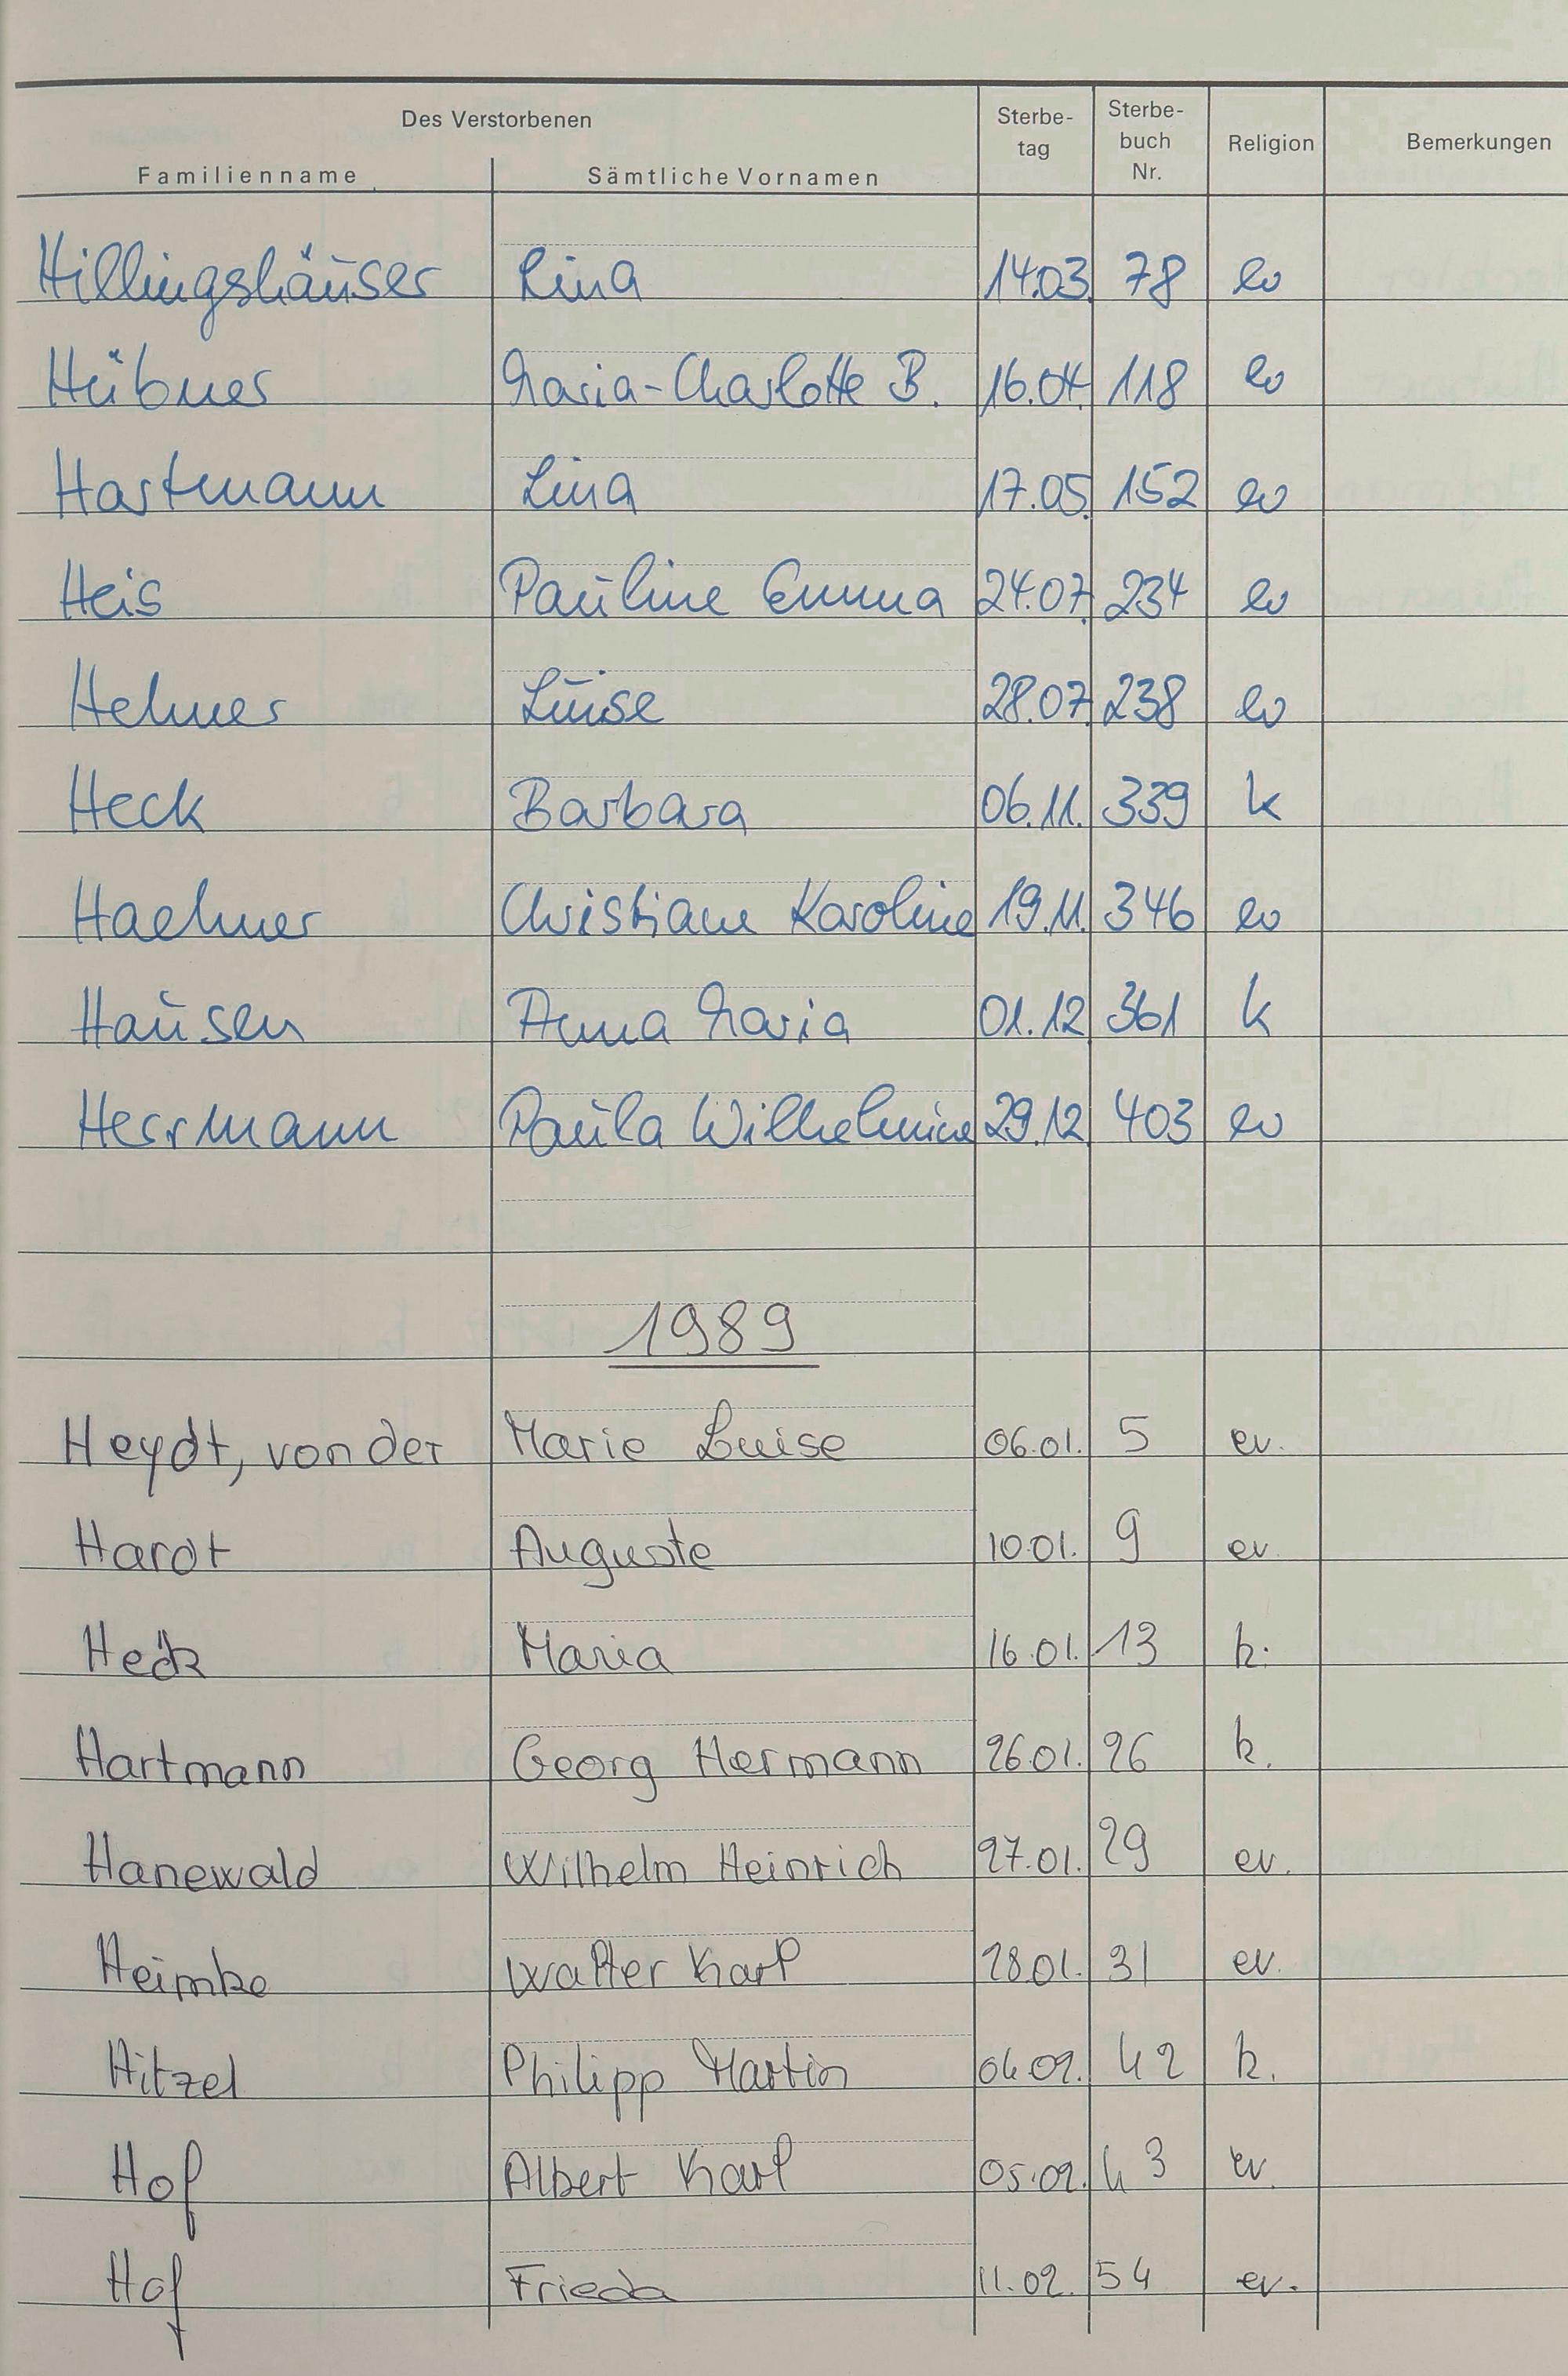 Des Verstorbenen
Familienname Sämtliche Vornamen Sterbe-tag Sterbe-buch Nr. Religion Bemerkungen
Hillingshäuser Lina 14.03. 78 ev
Hübner Maria-Charlotte B. 16.04. 118 ev
Hartmann Lina 17.05. 152 ev
Heis Pauline Emma 24.07. 234 ev
Helmer Luise 28.07. 238 ev
Heck Barbara 06.11. 339 k
Haehner Christiane Karoline 19.11. 346 ev
Hausen Anna Maria 01.12 361 k
Herrmann Paula Wilhelmine 29.12 403 ev
1989
Heydt, von der Marie Luise 06.01. 5 ev.
Hardt Auguste 10.01. 9 ev.
Heck Maria 16.01. 13 k.
Hartmann Georg Hermann 26.01. 26 k.
Hanewald Wilhelm Heinrich 27.01. 29 ev.
Heimke Walter Karl 28.01. 31 ev.
Hitzel Philipp Martin 04.02. 42 k.
Hof Albert Karl 05.02. 43 ev.
Hof Frieda 11.02. 54 ev.